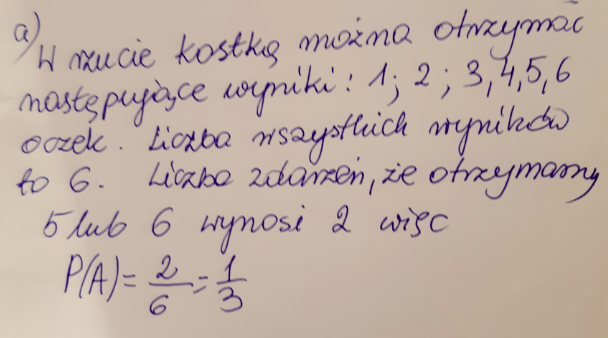 a)
W rzucie kostką można otrzymać
następujące wyniki: 1; 2; 3, 4, 5, 6
oczek. Liczba wszystkich wyników
to 6. Liczba zdarzeń, że otrzymamy
5 lub 6 wynosi 2 więc
P(A) = 2/6 = 1/3